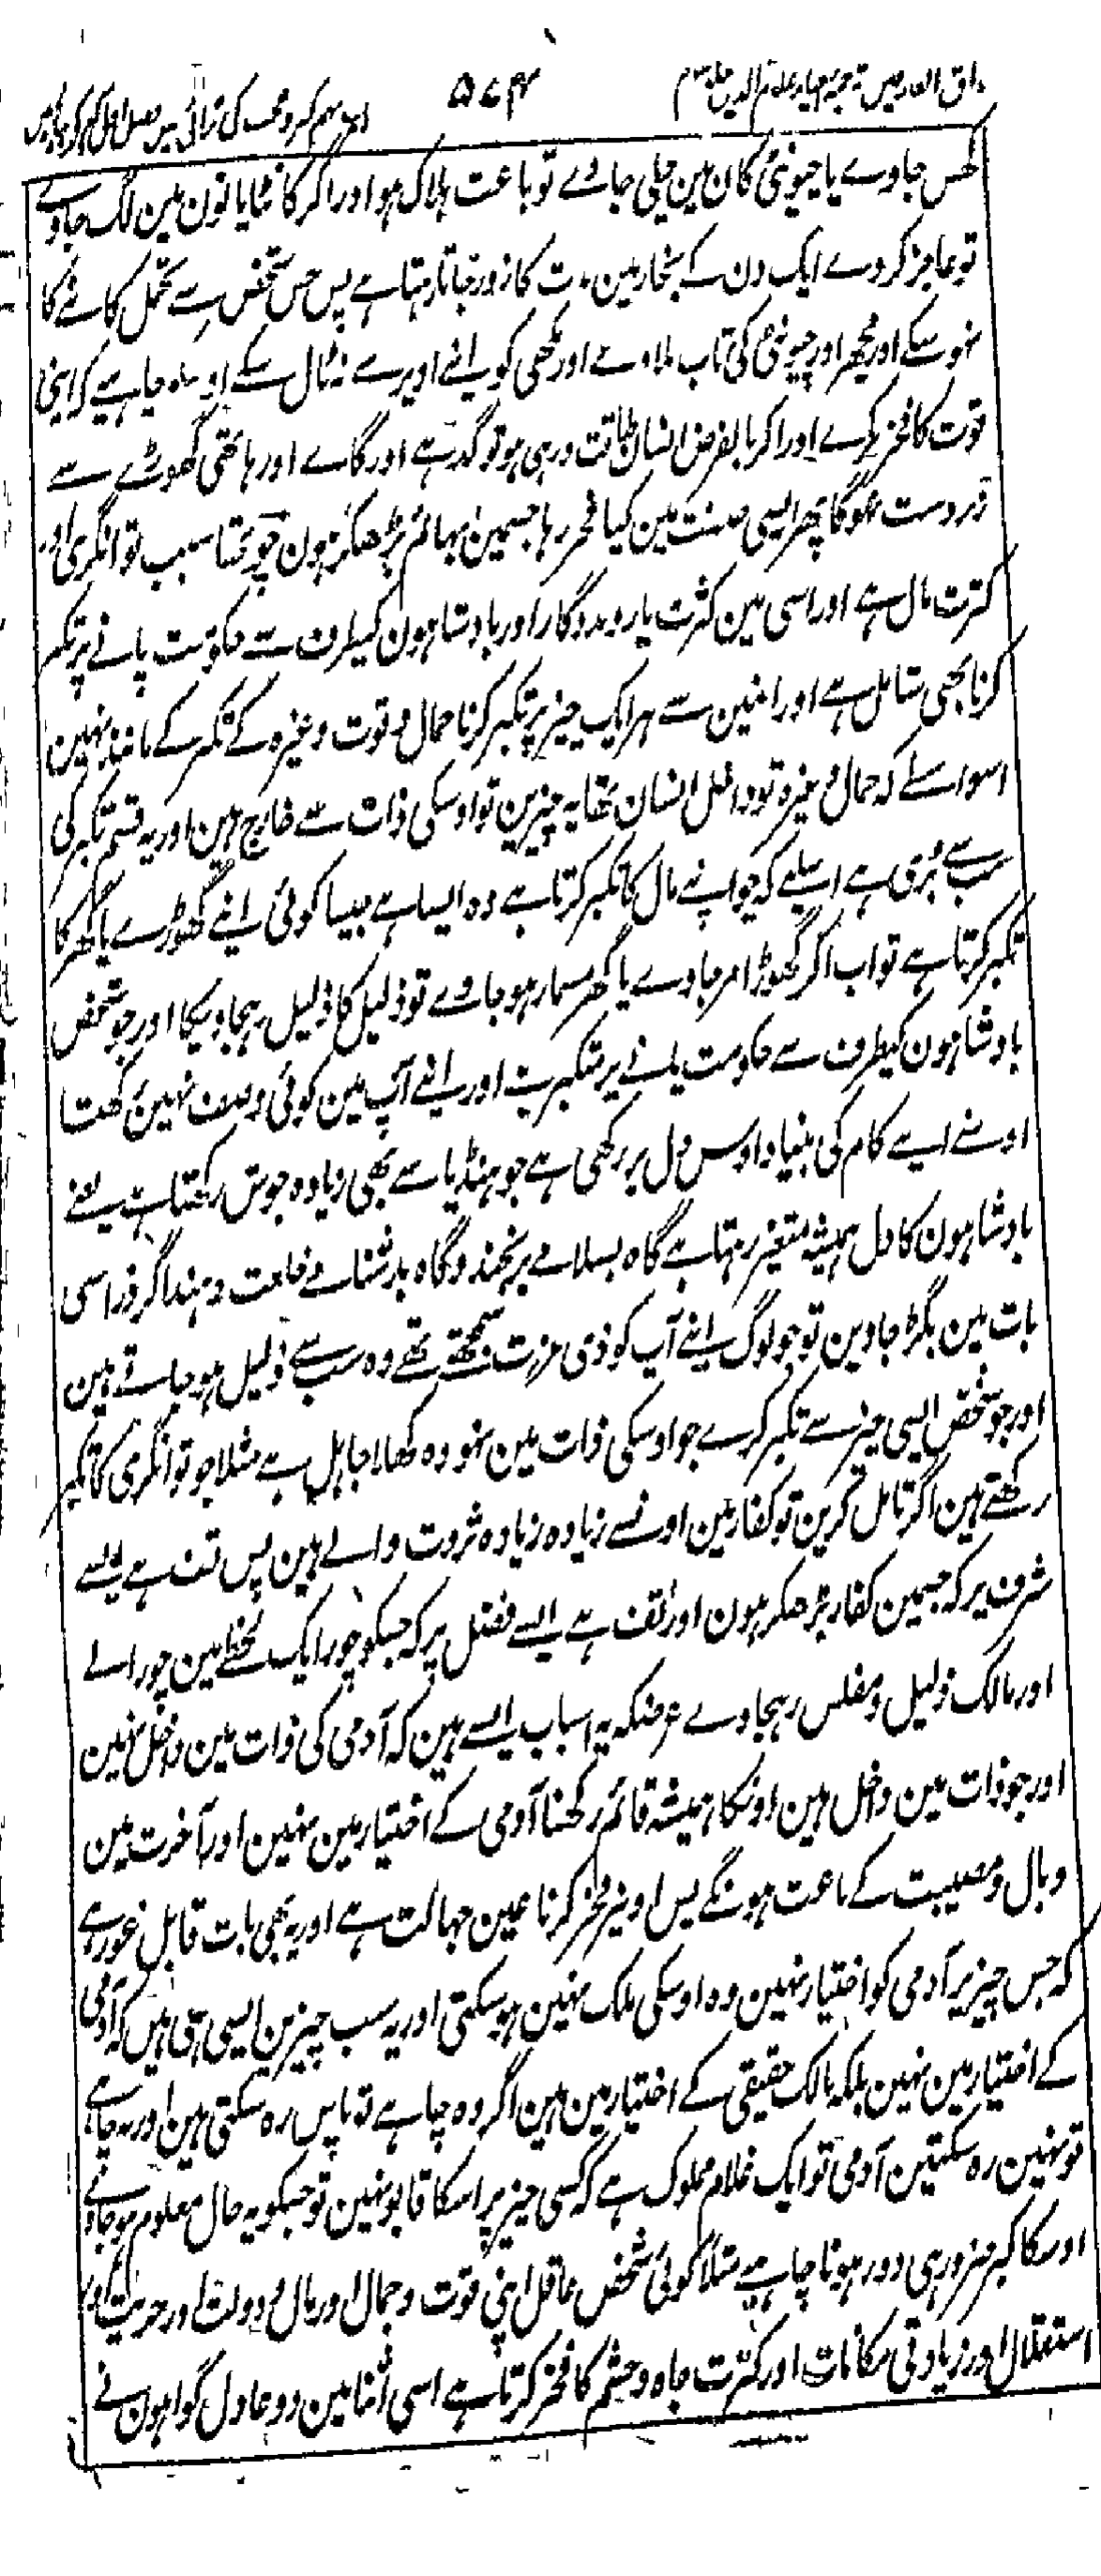 مذاق العارفین ترجمہ احیاء علوم الدین جلد سوم
۵۷۴
کی برائی میں فصل اول کبر کے بیان میں
گھس جاوے یا چیونٹی کان مین چلی جاوے تو باعث ہلاک ہو اور اگر کانٹا پانون مین لگ جاوے
تو عاجز کردے ایک دن کے بخار مین مدت کا زور جاتا رہتا ہے پس جس شخص سے تحمل کانٹے کا
نہوسکے اور مچھر اور چیونٹی کی تاب نلاوے اور مکھی کو اپنے اوپر سے نہ ٹال سکے اوسکو چاہیے کہ اپنی
قوت کا فخر نکرے اور اگر بالفرض انسان طاقت ور ہی ہو تو گدہے اور گاے اور ہاتھی گھوڑے سے
زبردست نہوگا پھر ایسی صفت مین کیا فخر رہا جسمین بہائم بڑھکر ہون چوتھا سبب توانگری اور
کثرت مال ہے اور اسی مین کثرت یار ومددگار اور بادشاہون کیطرف سے حکومت پانے پر تکبر
کرنا بھی شامل ہے اور انمین سے ہر ایک چیز پر تکبر کرنا جمال وقوت وغیرہ کے تکبر کے مانند نہین
اسواسطے کہ جمال وغیرہ تو داخل انسان تھا یہ چیزین تو اوسکی ذات سے خارج ہین اور یہ قسم تکبر کی
سب سے بُری ہے اسلیے کہ جو اپنے مال کا تکبر کرتا ہے وہ ایسا ہے جیسا کوئی اپنے گھوڑے یا گھر کا
تکبر کرتا ہے تو اب اگر گھوڑا مرجاوے یا گھر مسمار ہوجاوے تو ذلیل کا ذلیل رہجاویگا اور جو شخص
بادشاہون کیطرف سے حکومت پانے پر متکبر بنے اور اپنے آپ مین کوئی وصف نہین رکھتا
اوسنے اپنے کام کی بنیاد اوس دل پر رکھی ہے جو ہنڈیا سے بھی زیادہ جوش رکھتا ہے یعنے
بادشاہون کا دل ہمیشہ متغیر رہتا ہے گاہ بسلامے برنجند وگاہ بدشنامے خلعت دہند اگر ذراسی
بات مین بگڑ جاوین تو جو لوگ اپنے آپ کو ذی عزت سمجھتے تھے وہ سب سے ذلیل ہوجاتے ہین
اور جو شخص ایسی چیز سے تکبر کرے جو اوسکی ذات مین نہو وہ کھلا جاہل ہے مثلا جو توانگری کا تکبر
رکھتے ہین اگر تامل کرین تو کفار مین اونسے زیادہ زیادہ ثروت والے ہین پس تف ہے ایسے
شرف پر کہ جسمین کفار بڑھکر ہون اور تف ہے ایسے فضل پر کہ جسکو چور ایک لحظے مین چورا لے
اور مالک ذلیل ومفلس رہجاوے غرضکہ یہ اسباب ایسے ہین کہ آدمی کی ذات مین داخل نہین
اور جو ذات مین داخل ہین اونکا ہمیشہ قائم رکھنا آدمی کے اختیار مین نہین اور آخرت مین
وبال ومصیبت کے باعث ہونگے پس اونپر فخر کرنا عین جہالت ہے اور یہ بھی بات قابل غور ہے
کہ جس چیز پر آدمی کو اختیار نہین وہ اوسکی ملک نہین ہوسکتی اور یہ سب چیزین ایسی ہی ہین کہ آدمی
کے اختیار مین نہین بلکہ مالک حقیقی کے اختیار مین ہین اگر وہ چاہے تو پاس رہ سکتی ہین اور نہ چاہے
تو نہین رہ سکتین آدمی تو ایک غلام مملوک ہے کہ کسی چیز پر اسکا قابو نہین تو جسکو یہ حال معلوم ہوجاوے
اوسکا کبر ضرور ہی دور ہونا چاہیے مثلا کوئی شخص عاقل اپنی قوت وجمال اور مال ودولت اور حریت اور
استقلال اور زیادتی مکانات اور کثرت جاہ وحشم کا فخر کرتا ہے اسی اثنا مین دو عادل گواہون نے